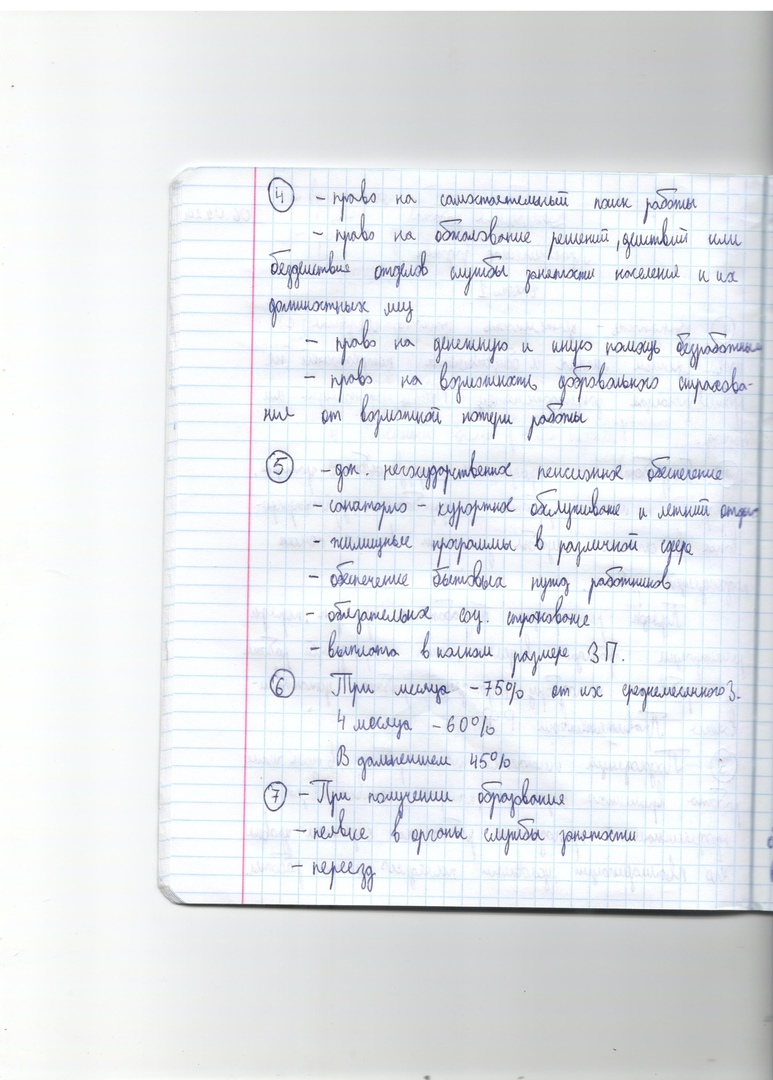 4 - право на самостоятельный поиск работы
- право на обжалование решений, действий или
бездействие отделов службы занятости населения и их
должностных лиц
- право на денежную и иную помощь безработным
- право на возможность добровольного страхова-
ния от возможной потери работы
5 - доп. негосударственное пенсионное обеспечение
- санаторно - курортное обслуживание и летний отдых
- жилищные программы в различной сфере
- обеспечение бытовых нужд работников
- обязательное соц. страхование
- выплата в полном размере ЗП.
6 Три месяца - 75% от их среднемесячного З.
4 месяца - 60%
В дальнейшем 45%
7 - При получении образования
- неявке в органы службы занятости
- переезд